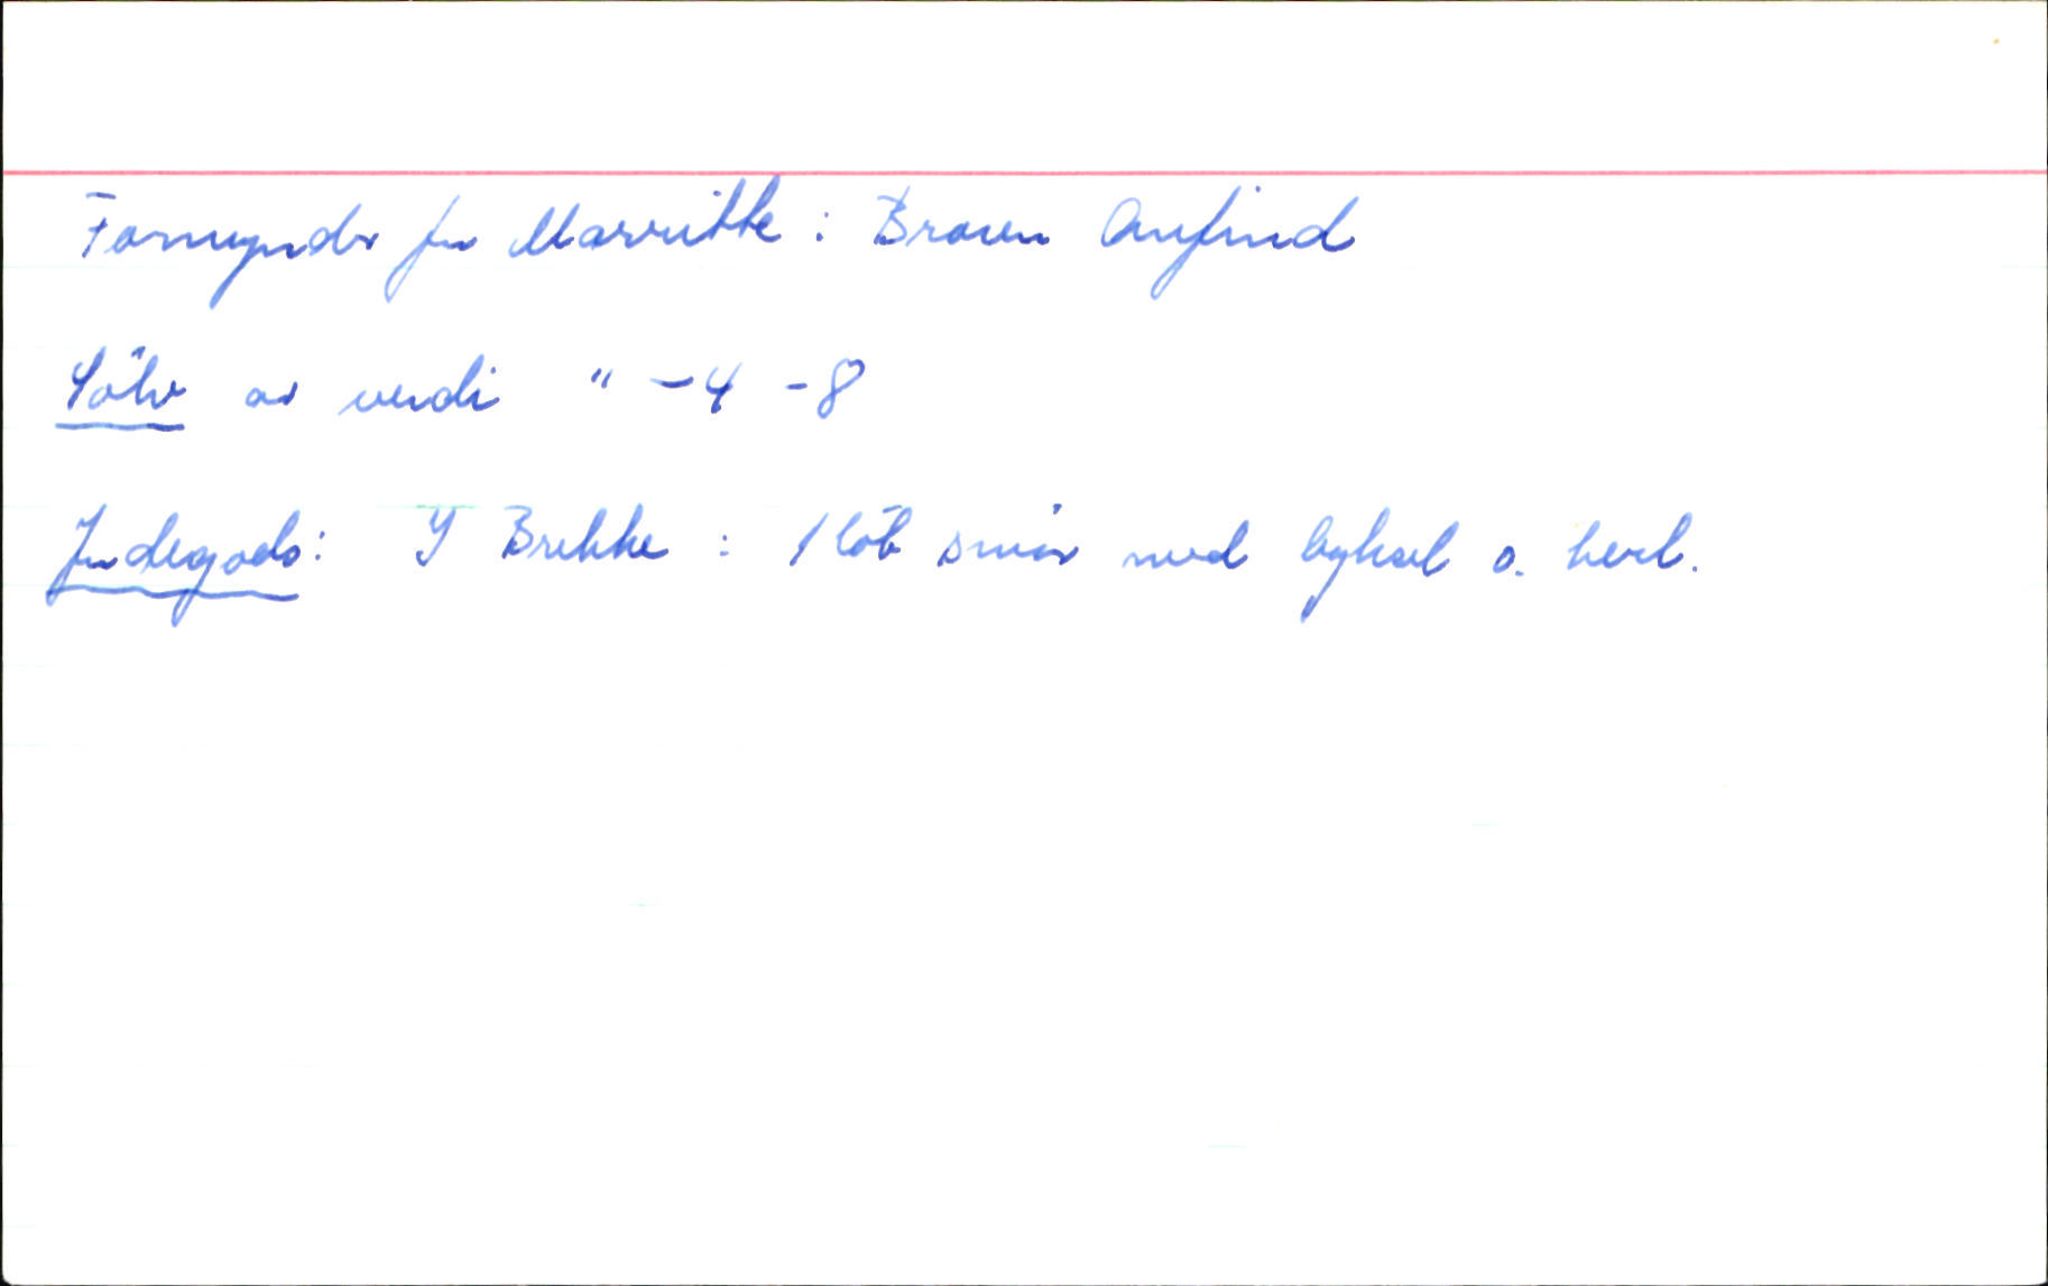 Formynder for Marritte: Broren Anfind
Sölv av verdi " - 4 - 8
Jordegods: I Brekke: 1 löb smör med bygsel o. herl.